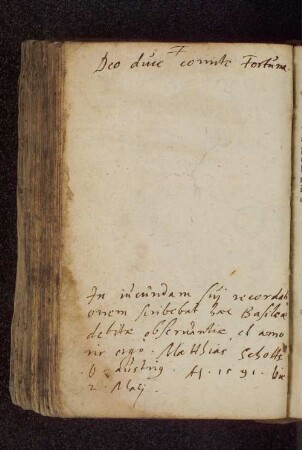 Deo duce comite Fortuna.
In iucundam sui recordati
onem scribebat haec Basileae
debitae observantiae et amo
ris ergo. Matthias Schotts
Austrig. A. 1591.
2. Maij.